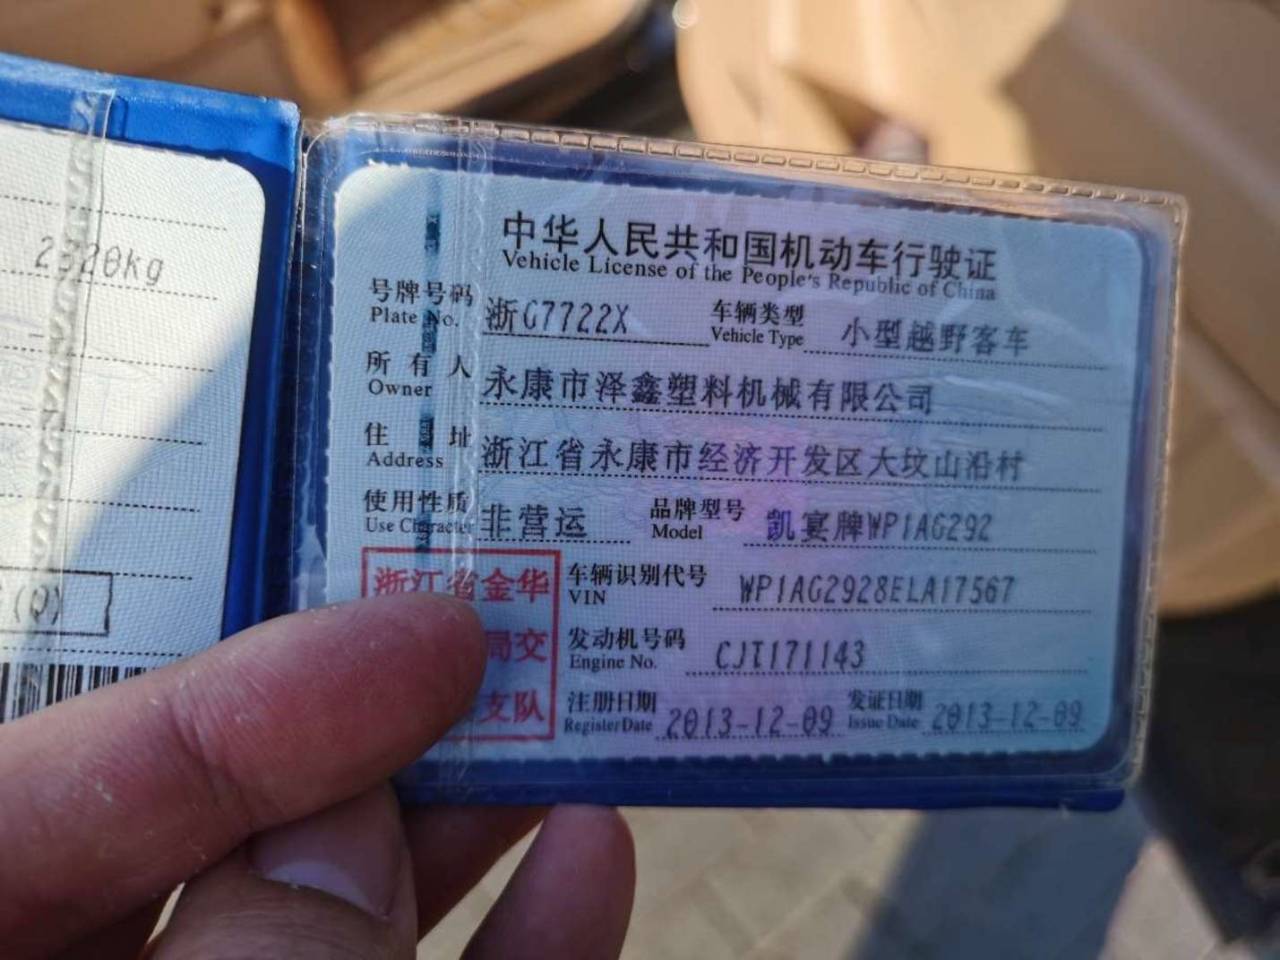 2320kg
(Q)
中华人民共和国机动车行驶证
Vehicle License of the People's Republic of China
号牌号码 浙G7722X 车辆类型 小型越野客车
Plate No. Vehicle Type
所有人 永康市泽鑫塑料机械有限公司
Owner
住址 浙江省永康市经济开发区大坟山沿村
Address
使用性质 非营运 品牌型号 凯宴牌WP1AG292
Use Character Model
浙江省金华
局交
支队
车辆识别代号 WP1AG2928ELA17567
VIN
发动机号码 CJT171143
Engine No.
注册日期 2013-12-09 发证日期 2013-12-09
Register Date Issue Date